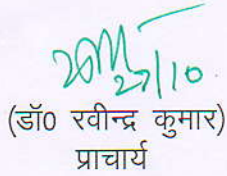 27/10
(डॉ0 रवीन्द्र कुमार)
प्राचार्य